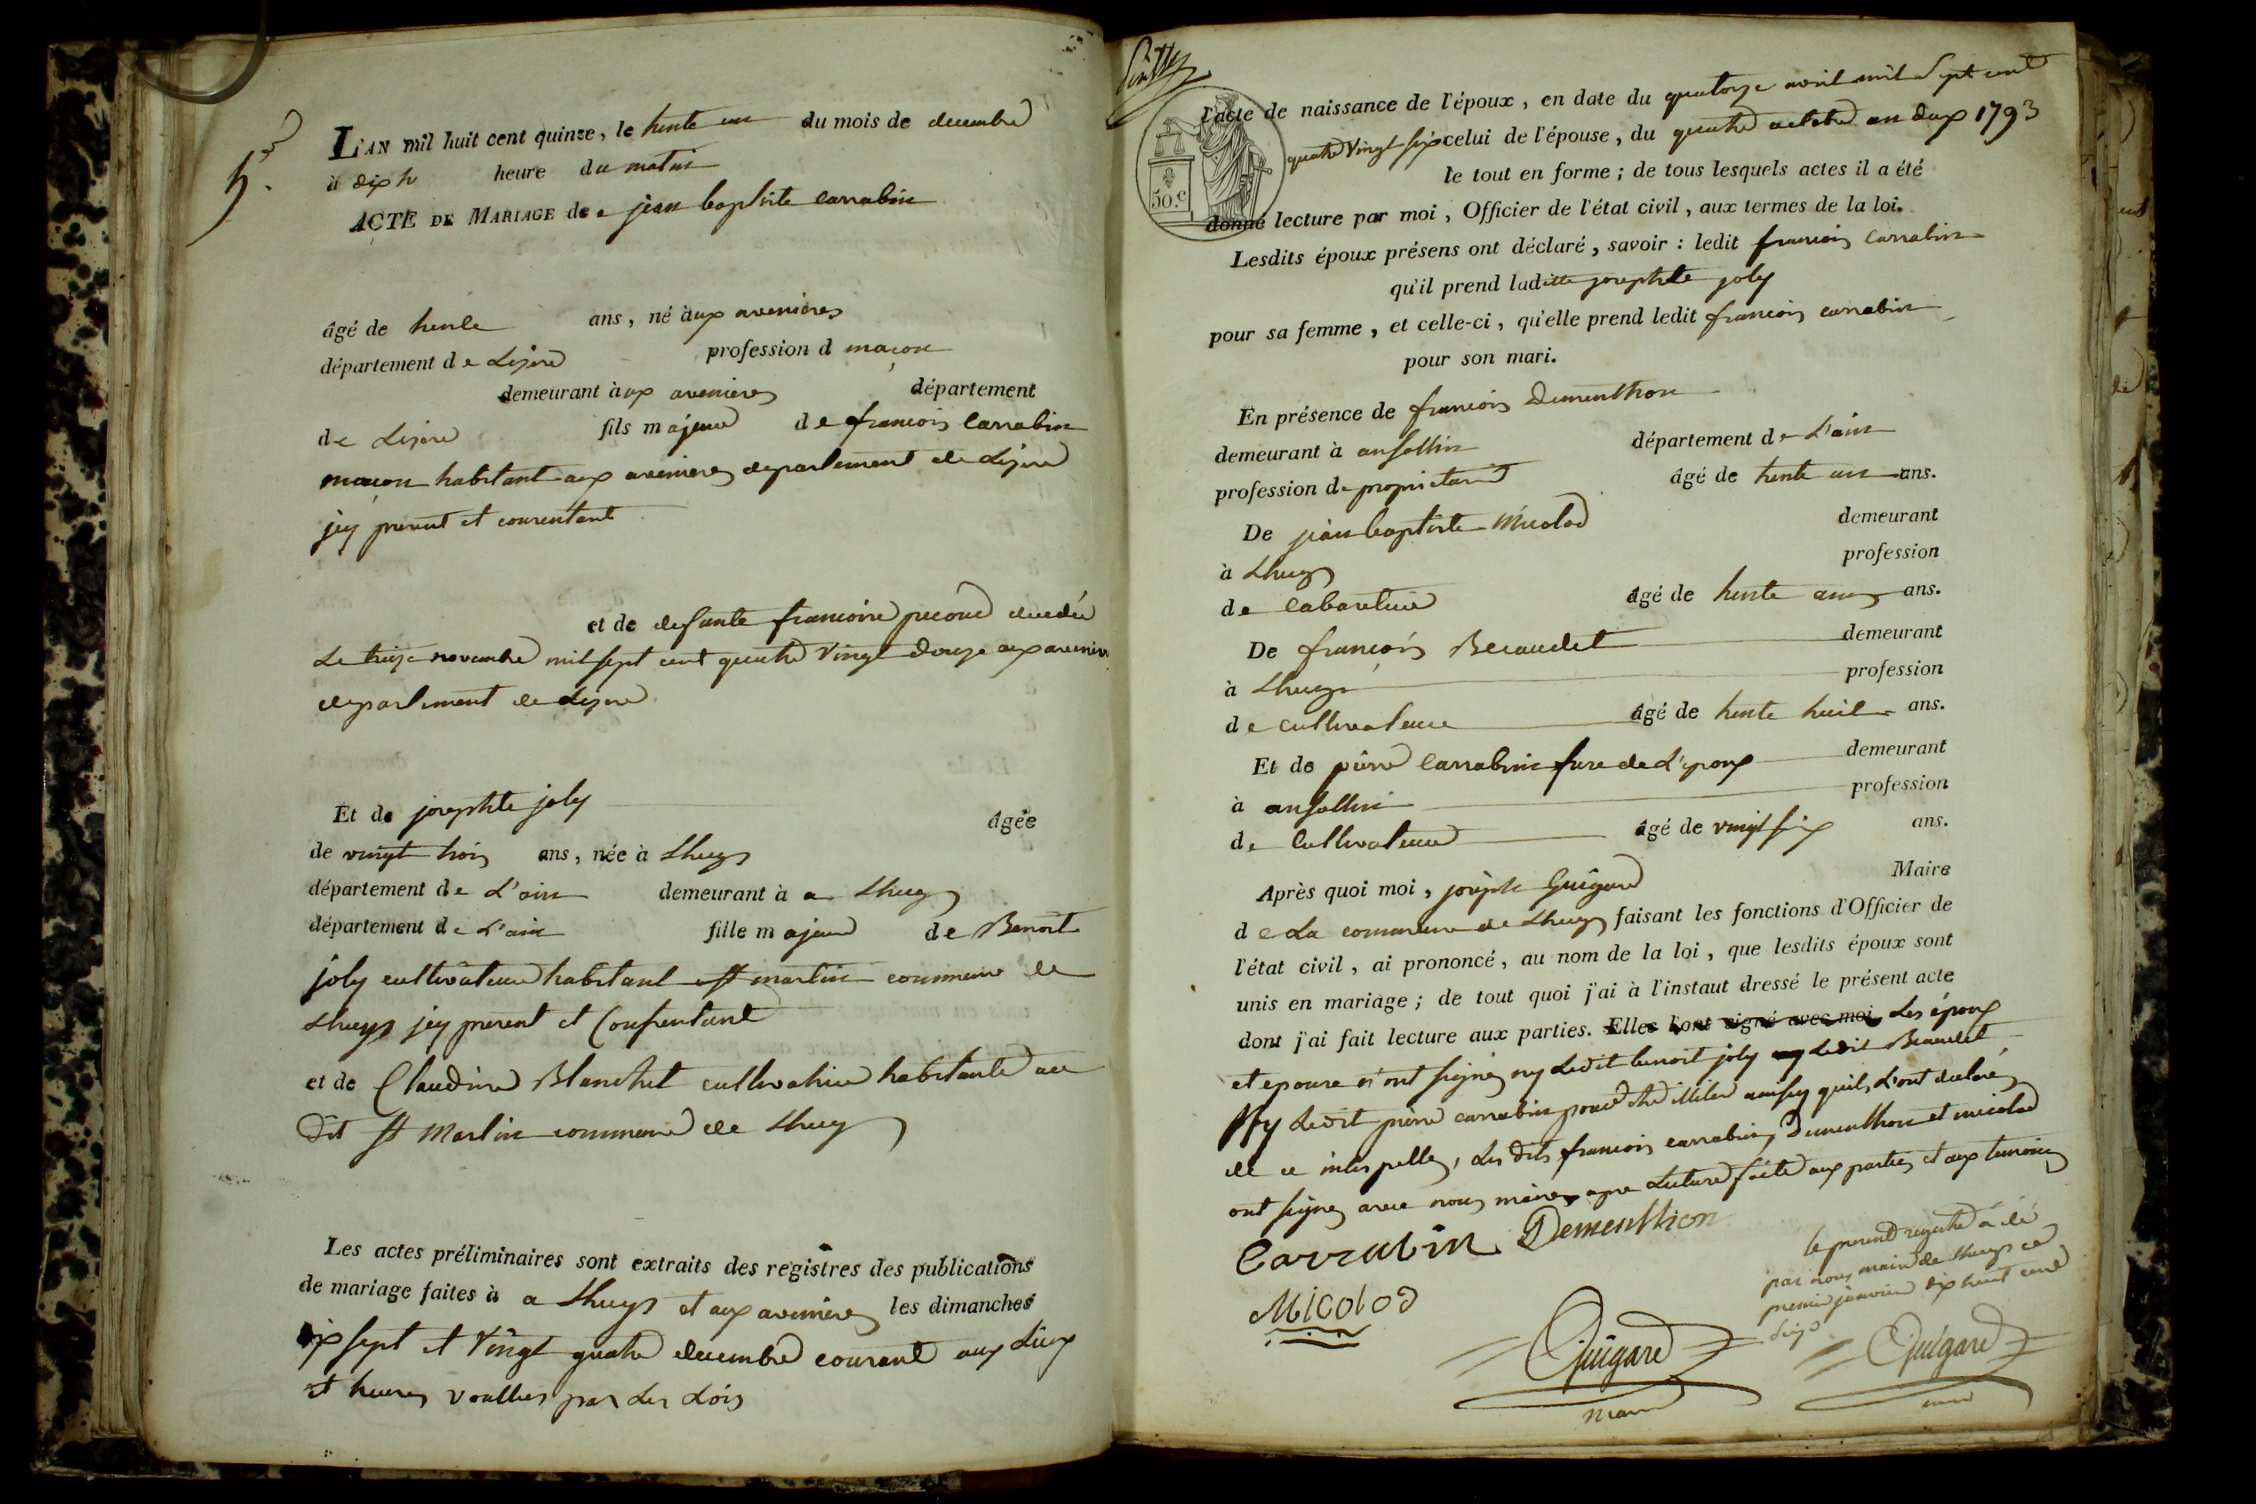 5.
L'AN mil huit cent quinze, le trente un du mois de decembre
à dix h heure du matin
ACTE DE MARIAGE de jean baptiste Carrabin
âgé de trente ans, né à aux avenieres
département de Lisere profession d maçon
demeurant à aux avenieres département
de Lisere fils majeur de francois Carrabin
maçon habitant aux avenieres departement de Lisere
jcy present et consentant
et de defunte francoise decedée
Le treize novembre mil sept cent quatre vingt douze aux avenieres
departement de Lisere
Et de josephte joly âgée
de vingt trois ans, née à Lhuys
département de L'ain demeurant à a Lhuys
département de L'ain fille majeure de Benoit
joly cultivateur habitant st martin commune de
Lhuys jcy present et Consentant
et de Claudine Blanchet cultivatrice habitante au
dit st Martin commune de Lhuys
Les actes préliminaires sont extraits des registres des publications
de mariage faites à a Lhuys et aux avenieres les dimanches
dix sept et vingt quatre decembre courant aux Lieux
et heures voullues par Les Lois
50.c
l'acte de naissance de l'époux, en date du quatorze avril mil sept cent
quatre vingt six celui de l'épouse, du quatre octobre an deux 1793
le tout en forme; de tous lesquels actes il a été
donné lecture par moi, Officier de l'état civil, aux termes de la loi.
Lesdits époux présens ont déclaré, savoir: ledit francois Carrabin
qu'il prend laditte josephte joly
pour sa femme, et celle-ci, qu'elle prend ledit francois carrabin
pour son mari.
En présence de francois Dementhon
demeurant à ansollin département de L'ain
profession de proprietaire âgé de trente un ans.
De jean baptiste Micolod demeurant
à Lhuys profession
de Cabaretier âgé de trente ans.
De françois Beraudet demeurant
à Lhuys profession
de cultivateur âgé de trente huit ans.
Et de pierre Carrabin frere de L'epoux demeurant
à ansollin profession
de Cultivateur âgé de vingt six ans.
Après quoi moi, joseph Guigard Maire
de La commune de Lhuys faisant les fonctions d'Officier de
l'état civil, ai prononcé, au nom de la loi, que lesdits époux sont
unis en mariage; de tout quoi j'ai à l'instant dressé le présent acte
dont j'ai fait lecture aux parties. Elles l'ont signé avec moi Les époux
et epouse n'ont signé ny Ledit benoit joly ny Ledit Beraudet
Ny Ledit pierre carrabin pour être illiteré ainsy quils L'ont declaré
de ce interpellés, Les dits francois carrabin, Dementhon et micolod
ont signés avec nous maire apre Lecture faite aux parties et aux temoins
Carrabin Dementhon
Micolod
Guigard
maire
le present registre a été
par nous maire de Lhuys ce
premier janvier dix huit cent
seize
Guigard
maire